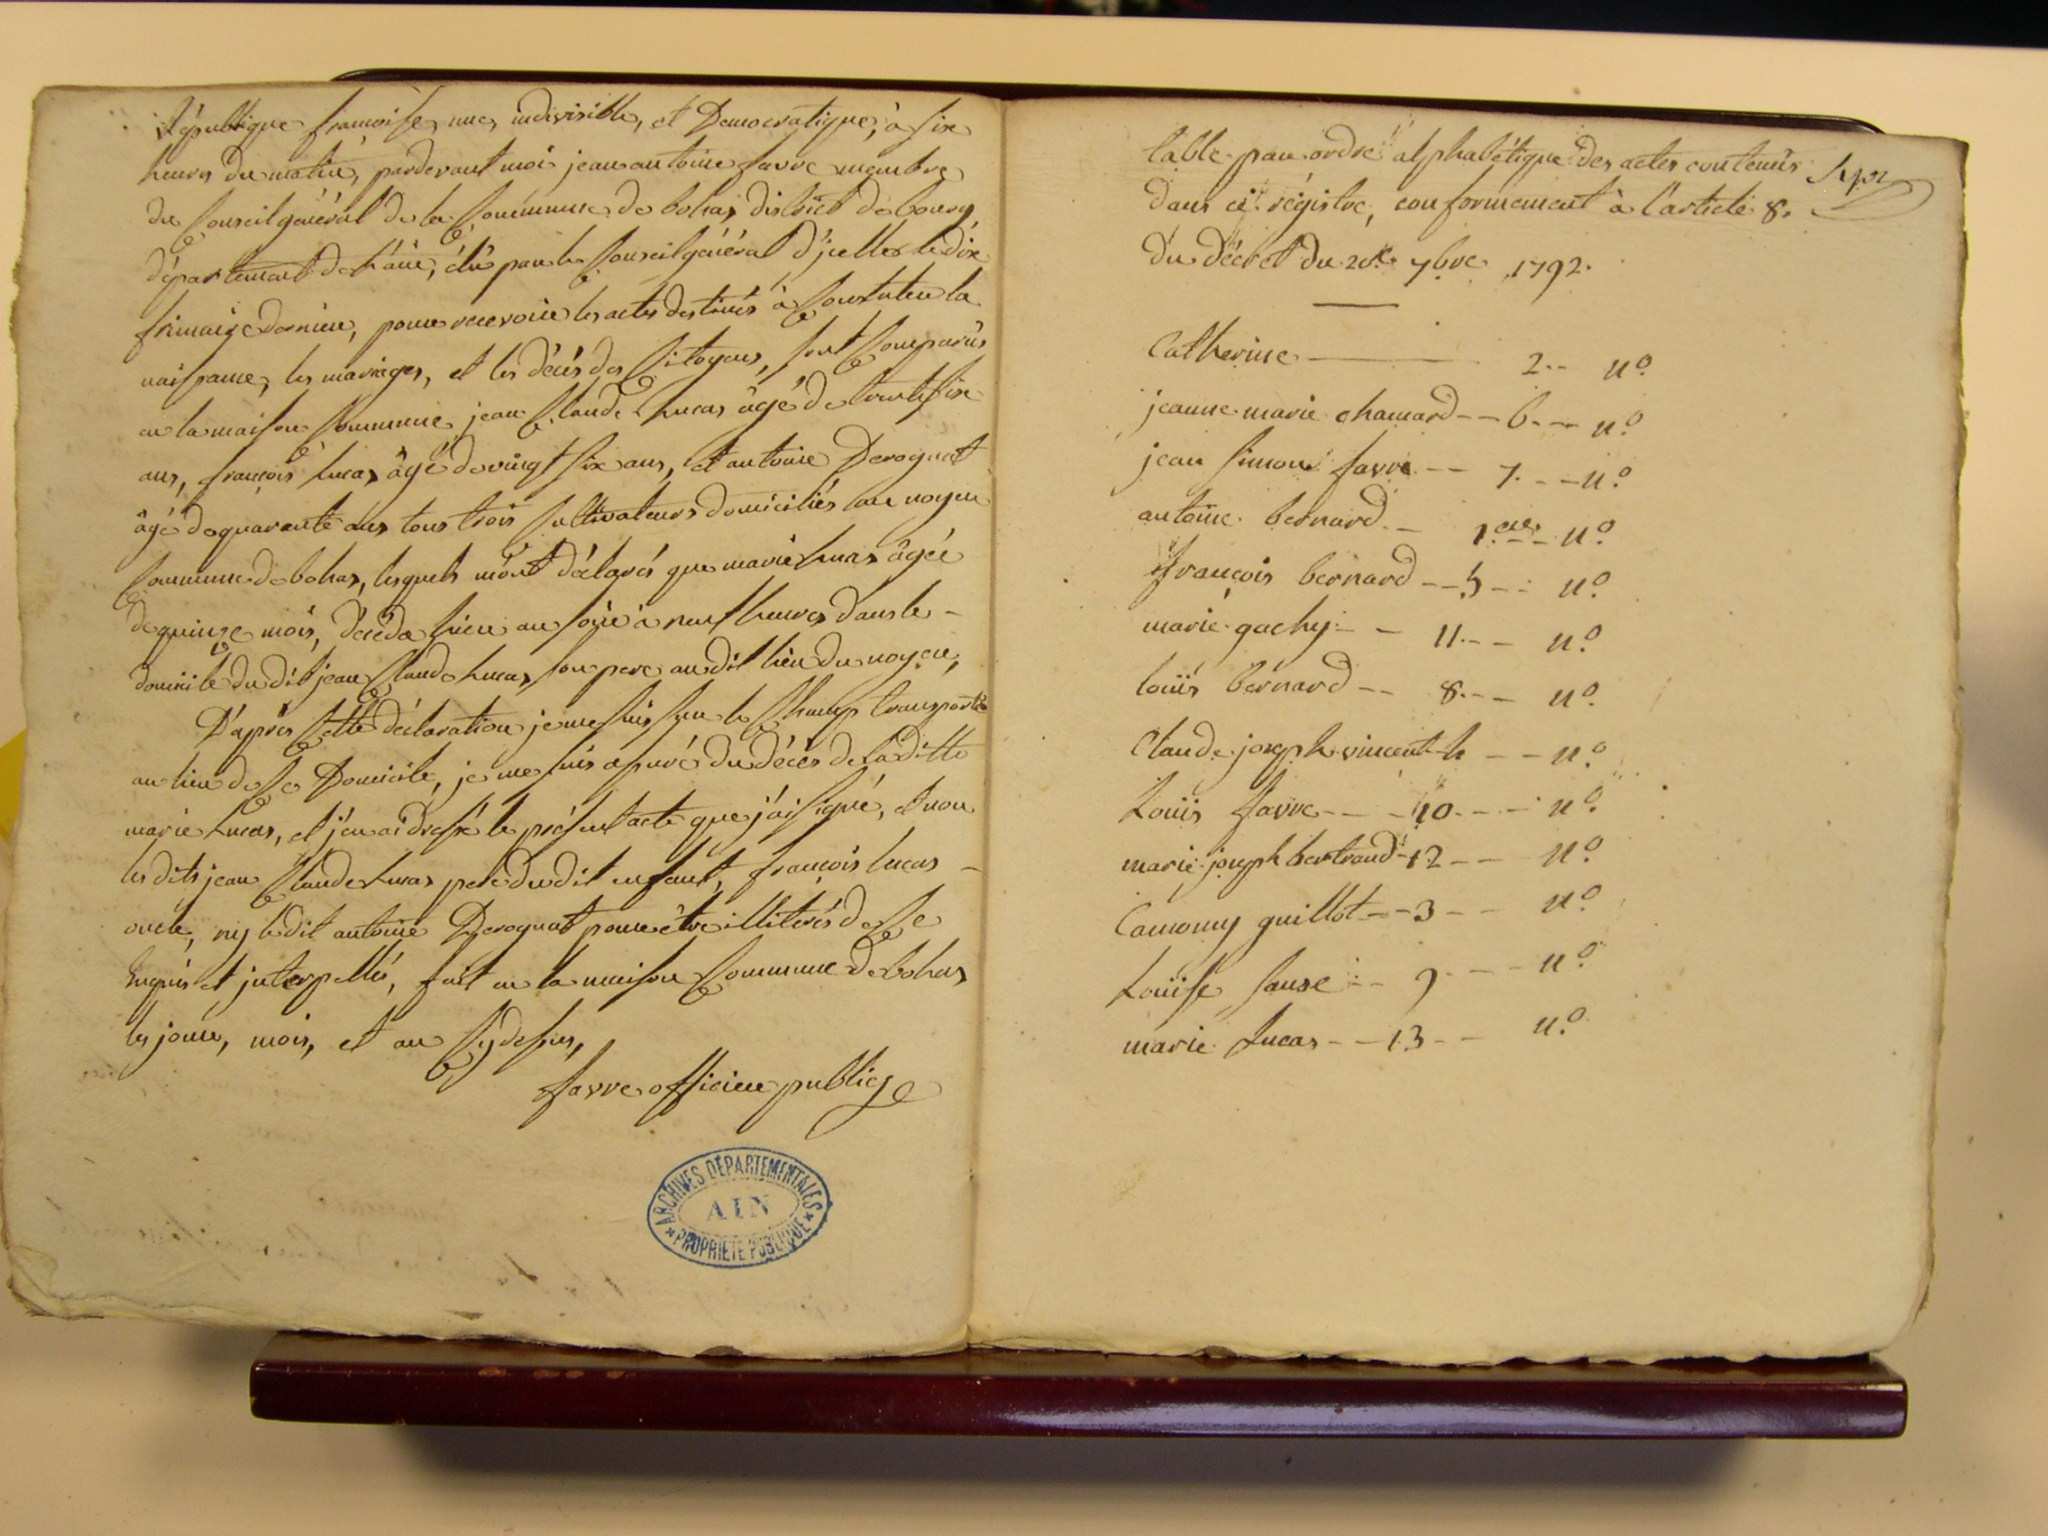 République françoise, une, indivisible, et Democratique, à six
heures du matin, pardevant moi jean antoine favre membre
du Conseil général de la Commune de bohas district de bourg
département de l'ain, élu par le Conseil général d'jcelle le dix
frimaire dernier, pour recevoir les actes destinés à Constater la
naissance, les mariages, et les décés des Citoyens, sont Comparus
en la maison Commune jean Claude Lucas âgé de trente six
ans, françois Lucas âgé de vingt six ans, et antoine Derognat
âgé de quarante ans tous trois Cultivateurs domiciliés au noyer
Commune de bohas, lesquels m'ont déclarés que marie Lucas âgée
de quinze mois, décéda hier au soir à neuf heures dans le -
domicile du dit jean Claude Lucas son pere au dit lieu du noyer,
D'après Cette déclaration je me suis sur le Champ transporté
au lieu de Ce Domicile, je me suis assuré du décés de la ditte
marie Lucas, et j'en ai dressé le présent acte que j'ai signé, et non
les dits jean Claude Lucas pere du dit enfant, françois lucas -
oncle, ny le dit antoine Derognat pour être illiterés de Ce
Enquis et jnterpellés, fait en la maison Commune de bohas
les jour, mois, et an Cy dessus,
favre officier public
ARCHIVES DÉPARTEMENTALES
AIN
PROPRIÉTÉ PUBLIQUE
table par ordre alphabétique des actes contenus
dans ce régistre, conformement à l'article 8.
du décret du 20e 7bre 1792.
Catherine 2 -- n°
jeanne marie chanard -- 6 -- n°
jean simon favre -- 7 -- n°
antoine bernard -- 1ere -- n°
françois bernard -- 5 -- n°
marie gachy -- 11 -- n°
louis bérnard -- 8 -- n°
Claude joseph vincent 4 -- n°
Louis favre -- 10 -- n°
marie joseph bertrand 12 -- n°
guillot -- 3 -- n°
Louise -- 9 -- n°
marie Lucas -- 13 -- n°